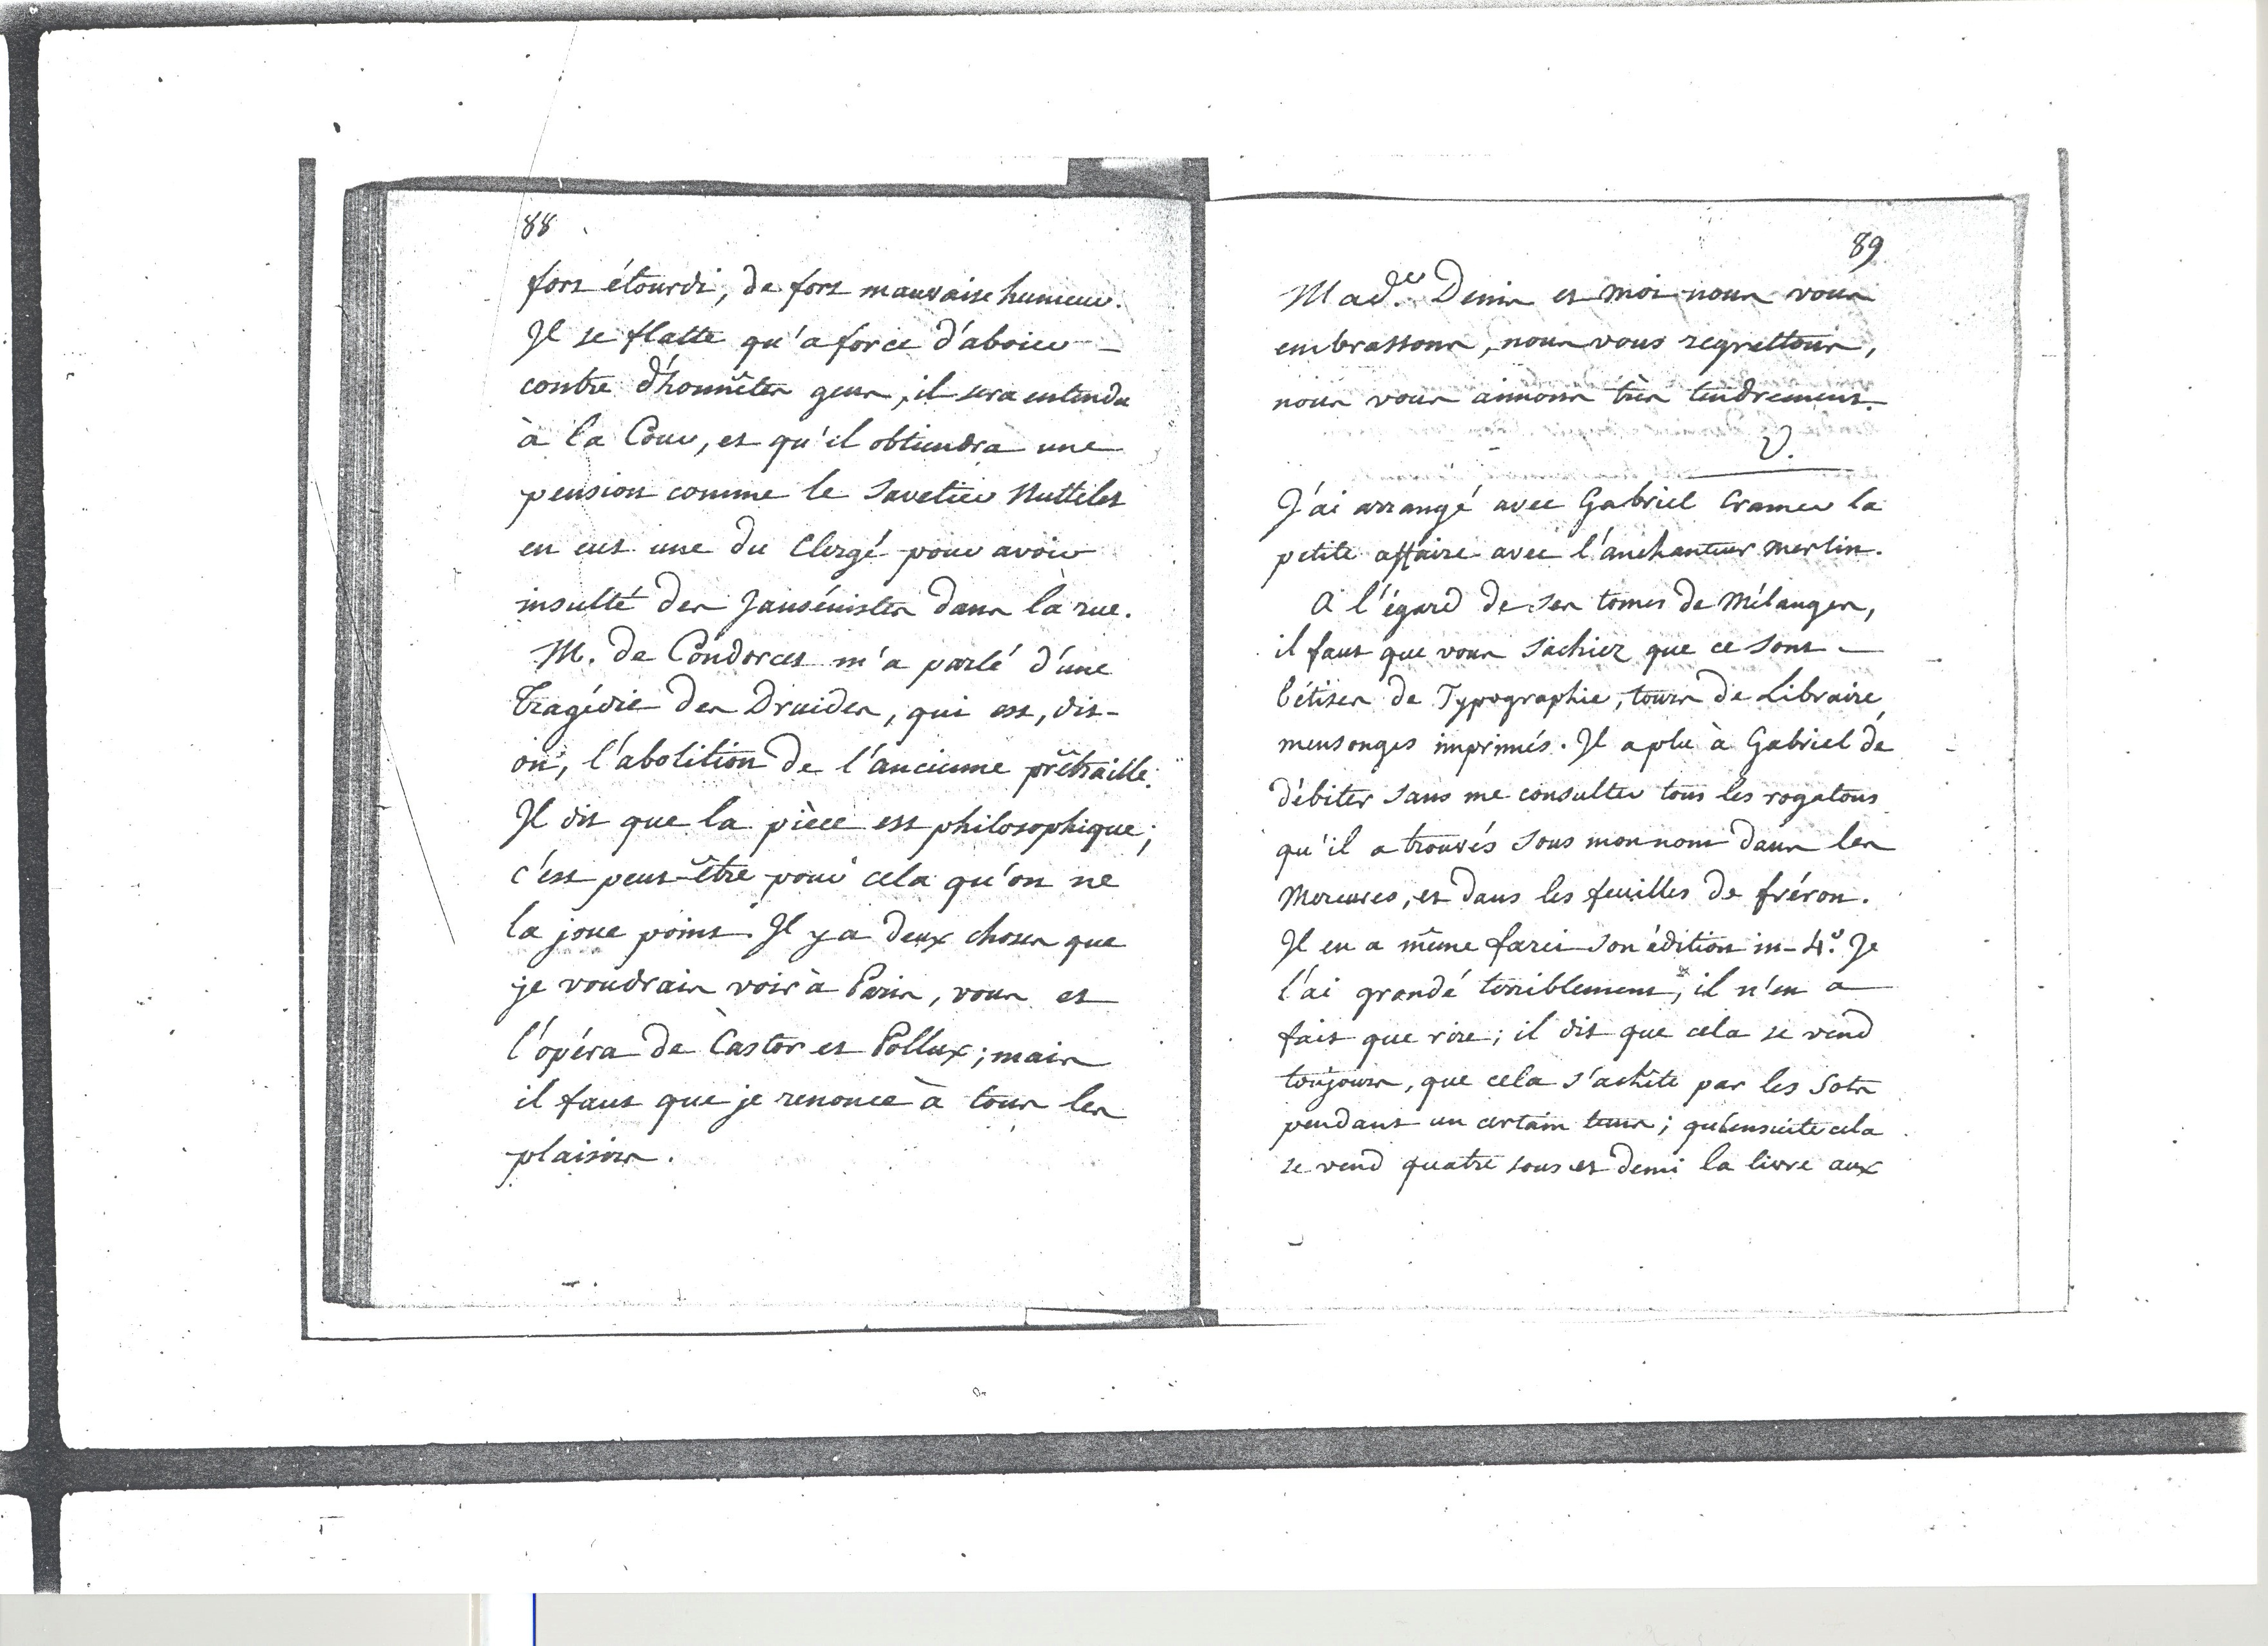 88
fort étourdi, de fort mauvaise humeur.
Il se flatte qu'a force d'aboier
contre d'honnêtes gens, il sera entendu
à la Cour, et qu'il obtiendra une
pension comme le Savetier Nutelet
en eut une du Clergé pour avoir
insulté des Jansénistes dans la rue.
M. de Condorcet m'a parlé d'une
Tragédie des Druides, qui est, dit-
on, l'abolition de l'ancienne prêtraille.
Il dit que la pièce est philosophique;
c'est peut-être pour cela qu'on ne
la joue point. Il y a deux choses que
je voudrais voir à Paris, vous et
l'opéra de Castor et Pollux; mais
il faut que je renonce à tous les
plaisirs.
89
Made. Denis et moi nous vous
embrassons, nous vous regrettons,
nous vous aimons très tendrement.
V.
J'ai arrangé avec Gabriel Cramer la
petite affaire avec l'anchanteur merlin.
A l'égard de ses tomes de Mélanges,
il faut que vous sachiez que ce sont
bêtises de Typographie, tours de Libraire,
mensonges imprimés. Il a plu à Gabriel de
débiter sans me consulter tous les rogatons
qu'il a trouvés sous mon nom dans les
Mercures, et dans les feuilles de fréron.
Il en a même farci son édition in-4.º Je
l'ai grondé terriblement, il n'en a
fait que rire; il dit que cela se vend
toujours, que cela s'achète par les Sots
pendant un certain tems; qu'ensuite cela
se vend quatre sous et demi la livre aux